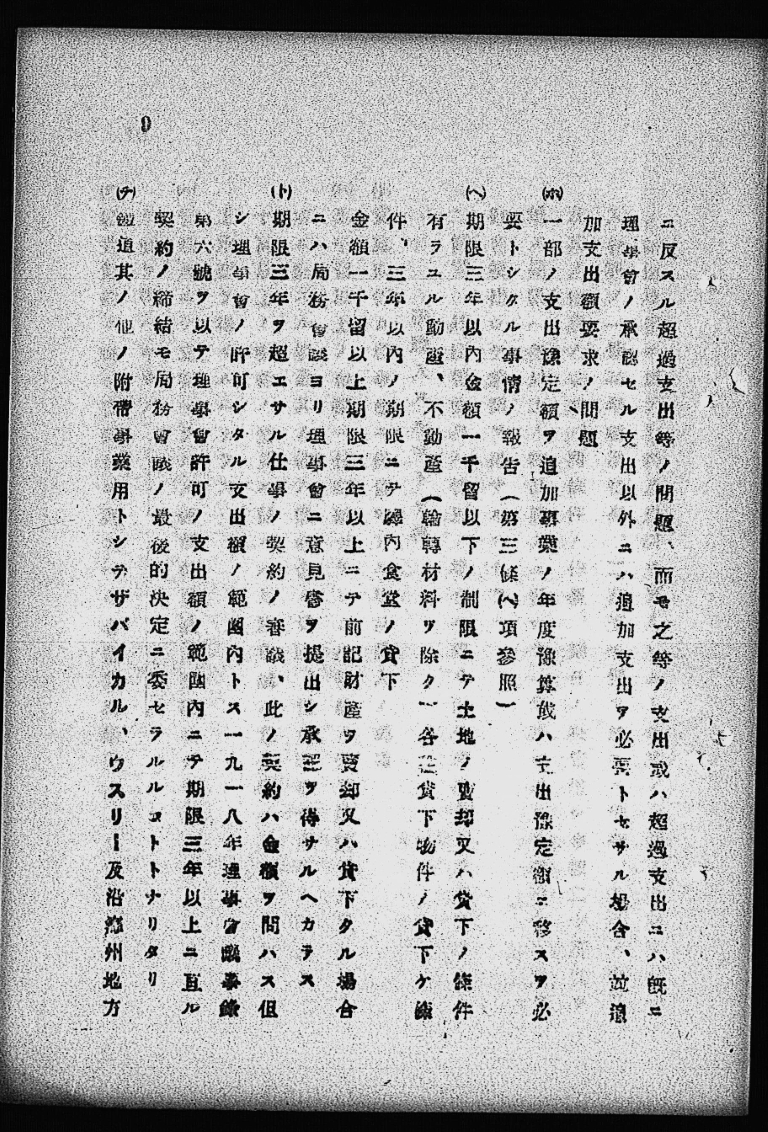 9
ニ反スル超過支出等ノ問題、而モ之等ノ支出或ハ超過支出ニハ既ニ
理事會ノ承認セル支出以外ニハ追加支出ヲ必要トセサル場合、竝追
加支出額要求ノ問題
(ホ)一部ノ支出豫定額ヲ追加事業ノ年度豫算或ハ支出豫定額ニ移スヲ必
要トシタル事情ノ報告(第三條(ヘ)項參照)
(ヘ)期限三年以內金額一千留以下ノ制限ニテ土地ノ賣却又ハ貸下ノ條件
有ラユル動產、不動產(輪轉材料ヲ除ク)各種貸下物件ノ貸下ケ條
件、三年以內ノ期限ニテ構內食堂ノ貸下
金額一千留以上期限三年以上ニテ前記財產ヲ賣却又ハ貸下タル場合
ニハ局務會議ヨリ理事會ニ意見書ヲ提出シ承認ヲ得サルヘカラス
(ト)期限三年ヲ超エサル仕事ノ契約ノ審議、此ノ契約ハ金額ヲ問ハス但
シ理事會ノ許可シタル支出額ノ範圍內トス一九一八年理事會議事錄
第六號ヲ以テ理事會許可ノ支出額ノ範圍內ニテ期限三年以上ニ亘ル
契約ノ締結モ局務會議ノ最後的決定ニ委セラルルコトトナリタリ
(チ)鐵道其ノ他ノ附帶事業用トシテザバイカル、ウスリー及沿海州地方